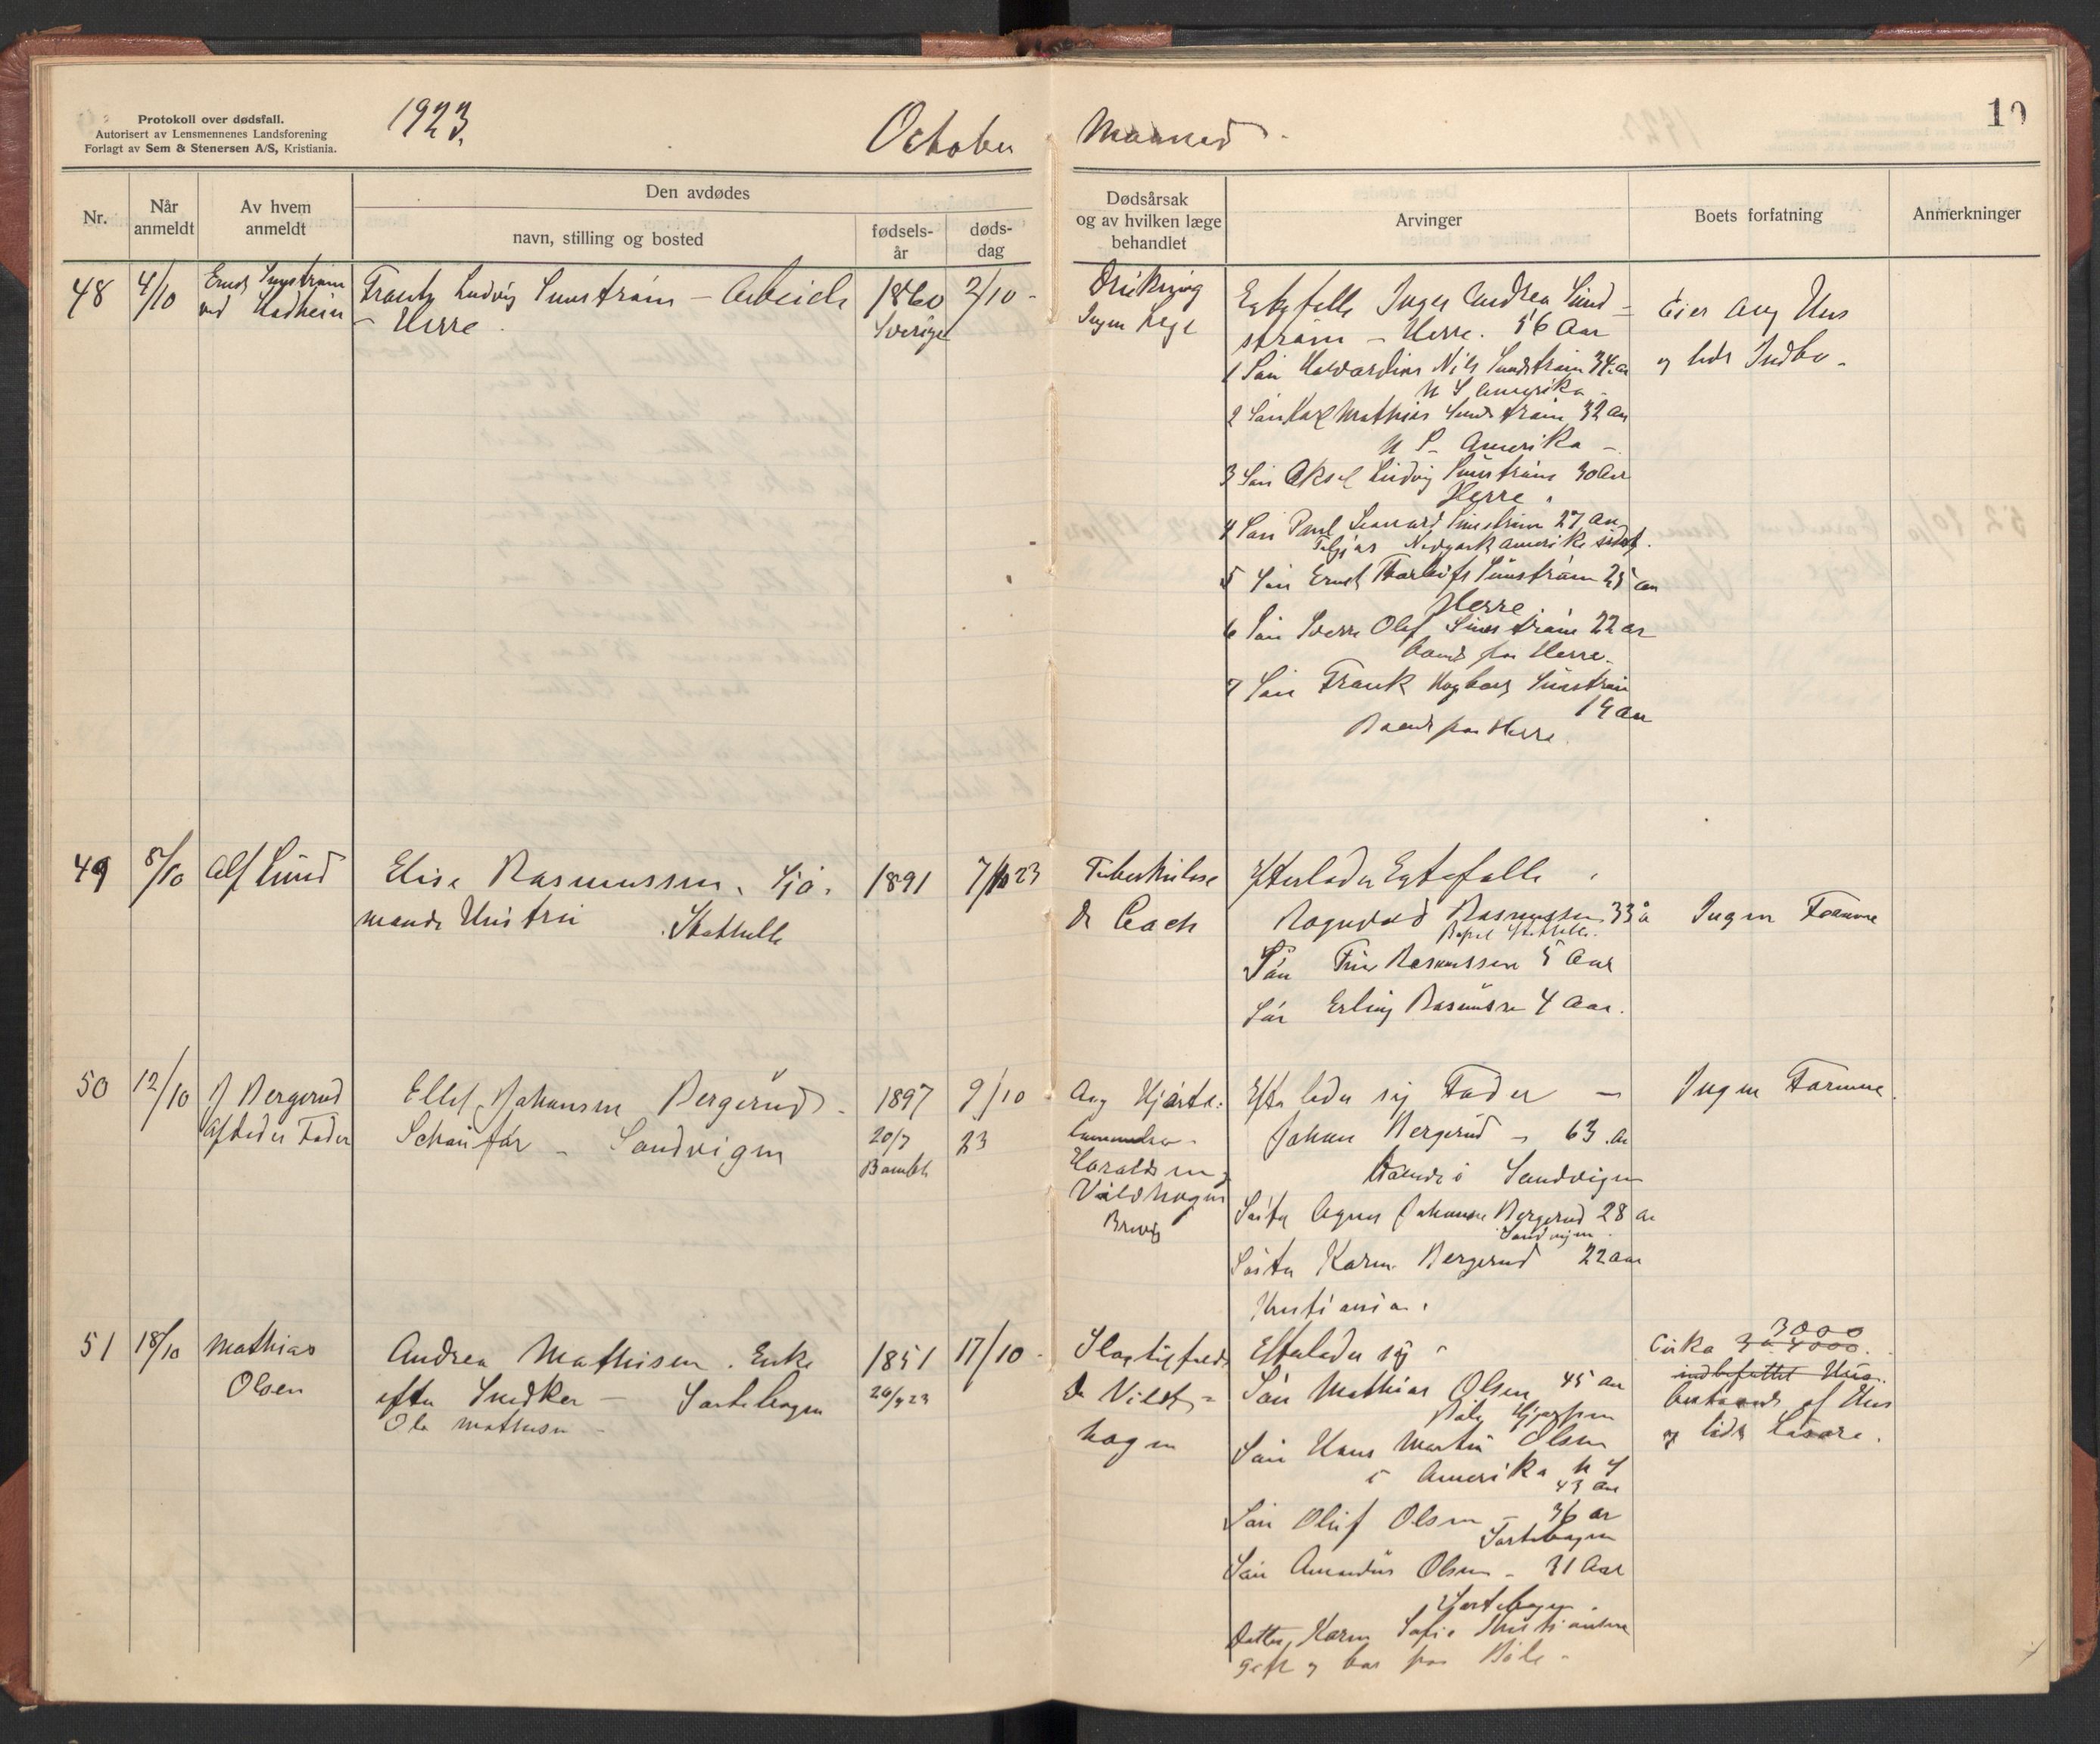 Protokoll over dødsfall.
Autorisert av Lensmennenes Landsforening
Forlagt av Sem & Stenersen A/S, Kristiania.
1923.
October Maaned
10
Nr.
Når anmeldt
Av hvem anmeldt
Den avdødes
navn, stilling og bosted
fødsels-år
døds-dag
Dødsårsak og av hvilken læge behandlet
Arvinger
Boets forfatning
Anmerkninger
48 4/10
Frantz Ludvig Sunström - Arbeider
- Herre.
1860
Sverige
2/10 -
Drukning
Ingen Lege
Egtefelle Inger Andrea Sund-
ström - Herre. 56 Aar
1 Sön Halvardius Nils Sundström 34 aar
N S Amerika
2 Sön Karl Mathias Sundström 32 aar
N S - Amerika -
3 Sön Aksel Ludvig Sunström 30 Aar
Herre.
4 Sön Paul Leonard Sunström 27 Aar
Newyork Amerika sidst.
5 Sön Ernst Thorleif Sunström 25 aar
Herre.
6 Sön Sverre Olaf Sunström 22 ar
boende paa Herre.
7 Sön Frank Sunström
19 aar
Boende paa Herre.
Eier Hus
og lidt Indbo -
49 8/10 Alf Lund
Elise Rasmussen, Sjö-
mands Hustru Stathelle
1891
7/10 23
Tuberkulose
Dr Coch
Efterlader Egtefelle
Ragnvald Rasmussen 33 a
Stathelle.
Sön Finn Rasmussen 5 Aar
Sön Erling Rasmussen 4 Aar.
Ingen Formue
50 12/10 J Bergerud
Afdödes Fader
Ellef Johansen Bergerud -
Sandvigen
1897
20/7
Bamble
9/10
23
Hjerte-
Haraldsen og
Vildhagen
Brevig
Efterlader sig Fader -
Johan Bergerud - 63 Aar
Boende i Sandvigen
Söster Agnes Johanne Bergerud 28 aar
Sandvigen.
Söster Karen Bergerud 22 aar
Kristiania.
Ingen Formue.
51 18/10 Mathias
Olsen
Andrea Mathisen. Enke
efter Snedker - Sortebogen
Ole Mathisen -
1851
17/10 -
Slagtilfelde
Dr Vild-
hagen
Efterlader sig
Sön Mathias Olsen 45 aar
Sön Hans Martin Olsen
i Amerika N S
43 aar
Sön Oluf Olsen - 36 ar
Sortebogen
Sön Amandus Olsen - 31 Aar
Sortebogen.
Datter, Karen Sofie Kristiansen
gift og bor paa Böle -
Cirka 3000
indbefattet Hus.
bestaaende af Hus
og lidt Lösöre.